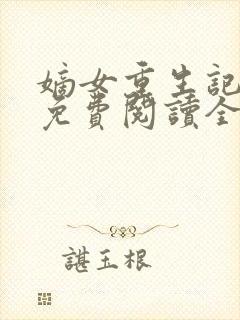 嫡女重生記
免費閱讀全
諶玉根